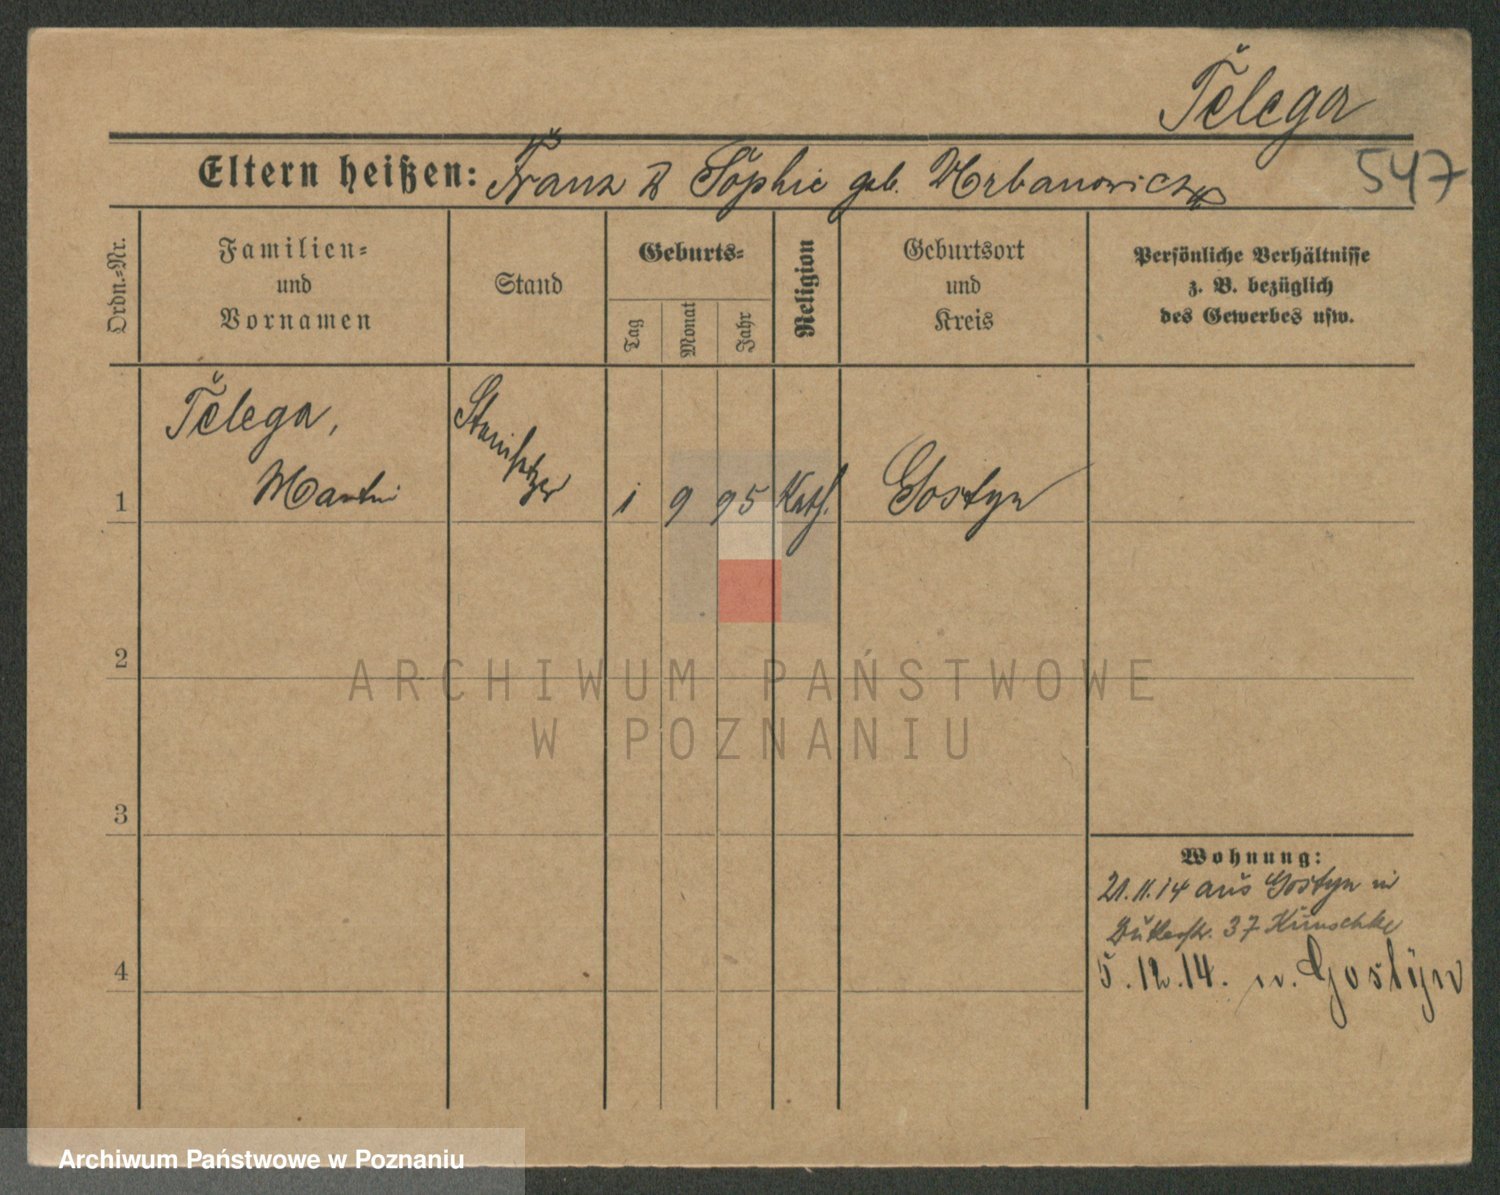 Telega
547
Eltern heißen: Franz & Sophie geb. Urbanowicz
Ordn.-Nr.
Familien-
und
Vornamen
Stand
Geburts-
Tag
Monat
Jahr
Religion
Geburtsort
und
Kreis
Persönliche Verhältnisse
z. B. bezüglich
des Gewerbes usw.
Telega,
Martin
1
1 9 95 Kath.
Gostyn
2
3
4
ARCHIWUM PAŃSTWOWE
W POZNANIU
Wohnung:
21.11.14 aus Gostyn in
37
5.12.14. n. Gostyn
Archiwum Państwowe w Poznaniu